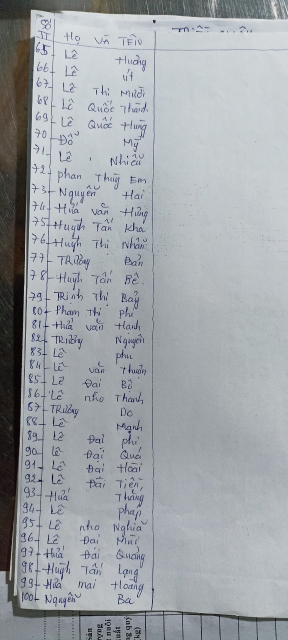 Số TT Họ Và Tên
65 Lê Hưởng
66 Lê Út
67 Lê Thị Mười
68 Lê Quốc Thành
69 Lê Quốc Hưng
70 Đỗ Mỹ
71 Lê Nhiều
72 Phan Thùy Em
73 Nguyễn Hai
74 Hứa Văn Hùng
75 Huỳnh Tấn Kha
76 Huỳnh Thị Nhân
77 Trương Bản
78 Huỳnh Tấn Bê
79 Trịnh Thị Bảy
80 Phạm Thị Phi
81 Hứa Văn Hạnh
82 Trương Nguyên
83 Lê Phu
84 Lê Văn Thuần
85 Lê Đại Bộ
86 Lê Nho Thanh
87 Trương Do
88 Lê Mạnh
89 Lê Đại Phi
90 Lê Đại Quá
91 Lê Đại Hoài
92 Lê Đại Tiến
93 Hứa Thắng
94 Lê Pháp
95 Lê Nho Nghĩa
96 Lê Đại Mùi
97 Hứa Đại Quảng
98 Huỳnh Tấn Lạng
99 Hứa Mai Hoàng
100 Nguyễn Ba